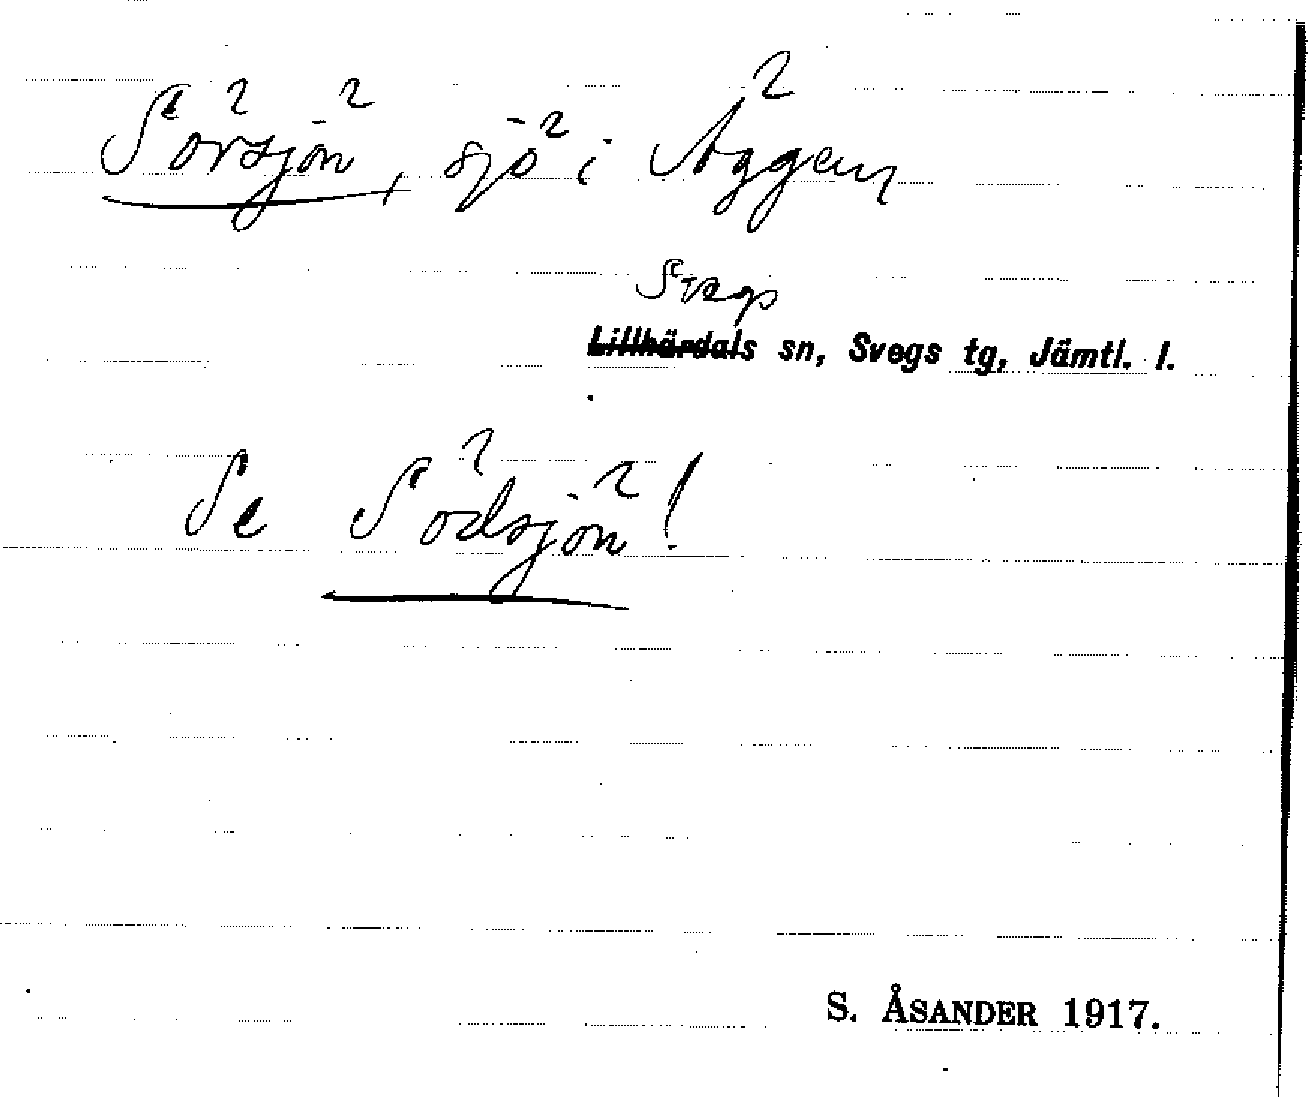 Sörsjön, sjö i Äggen
Svegs
Lillhärdals sn, Svegs tg, Jämtl. l.
Se Södsjön!
S. ÅSANDER 1917.